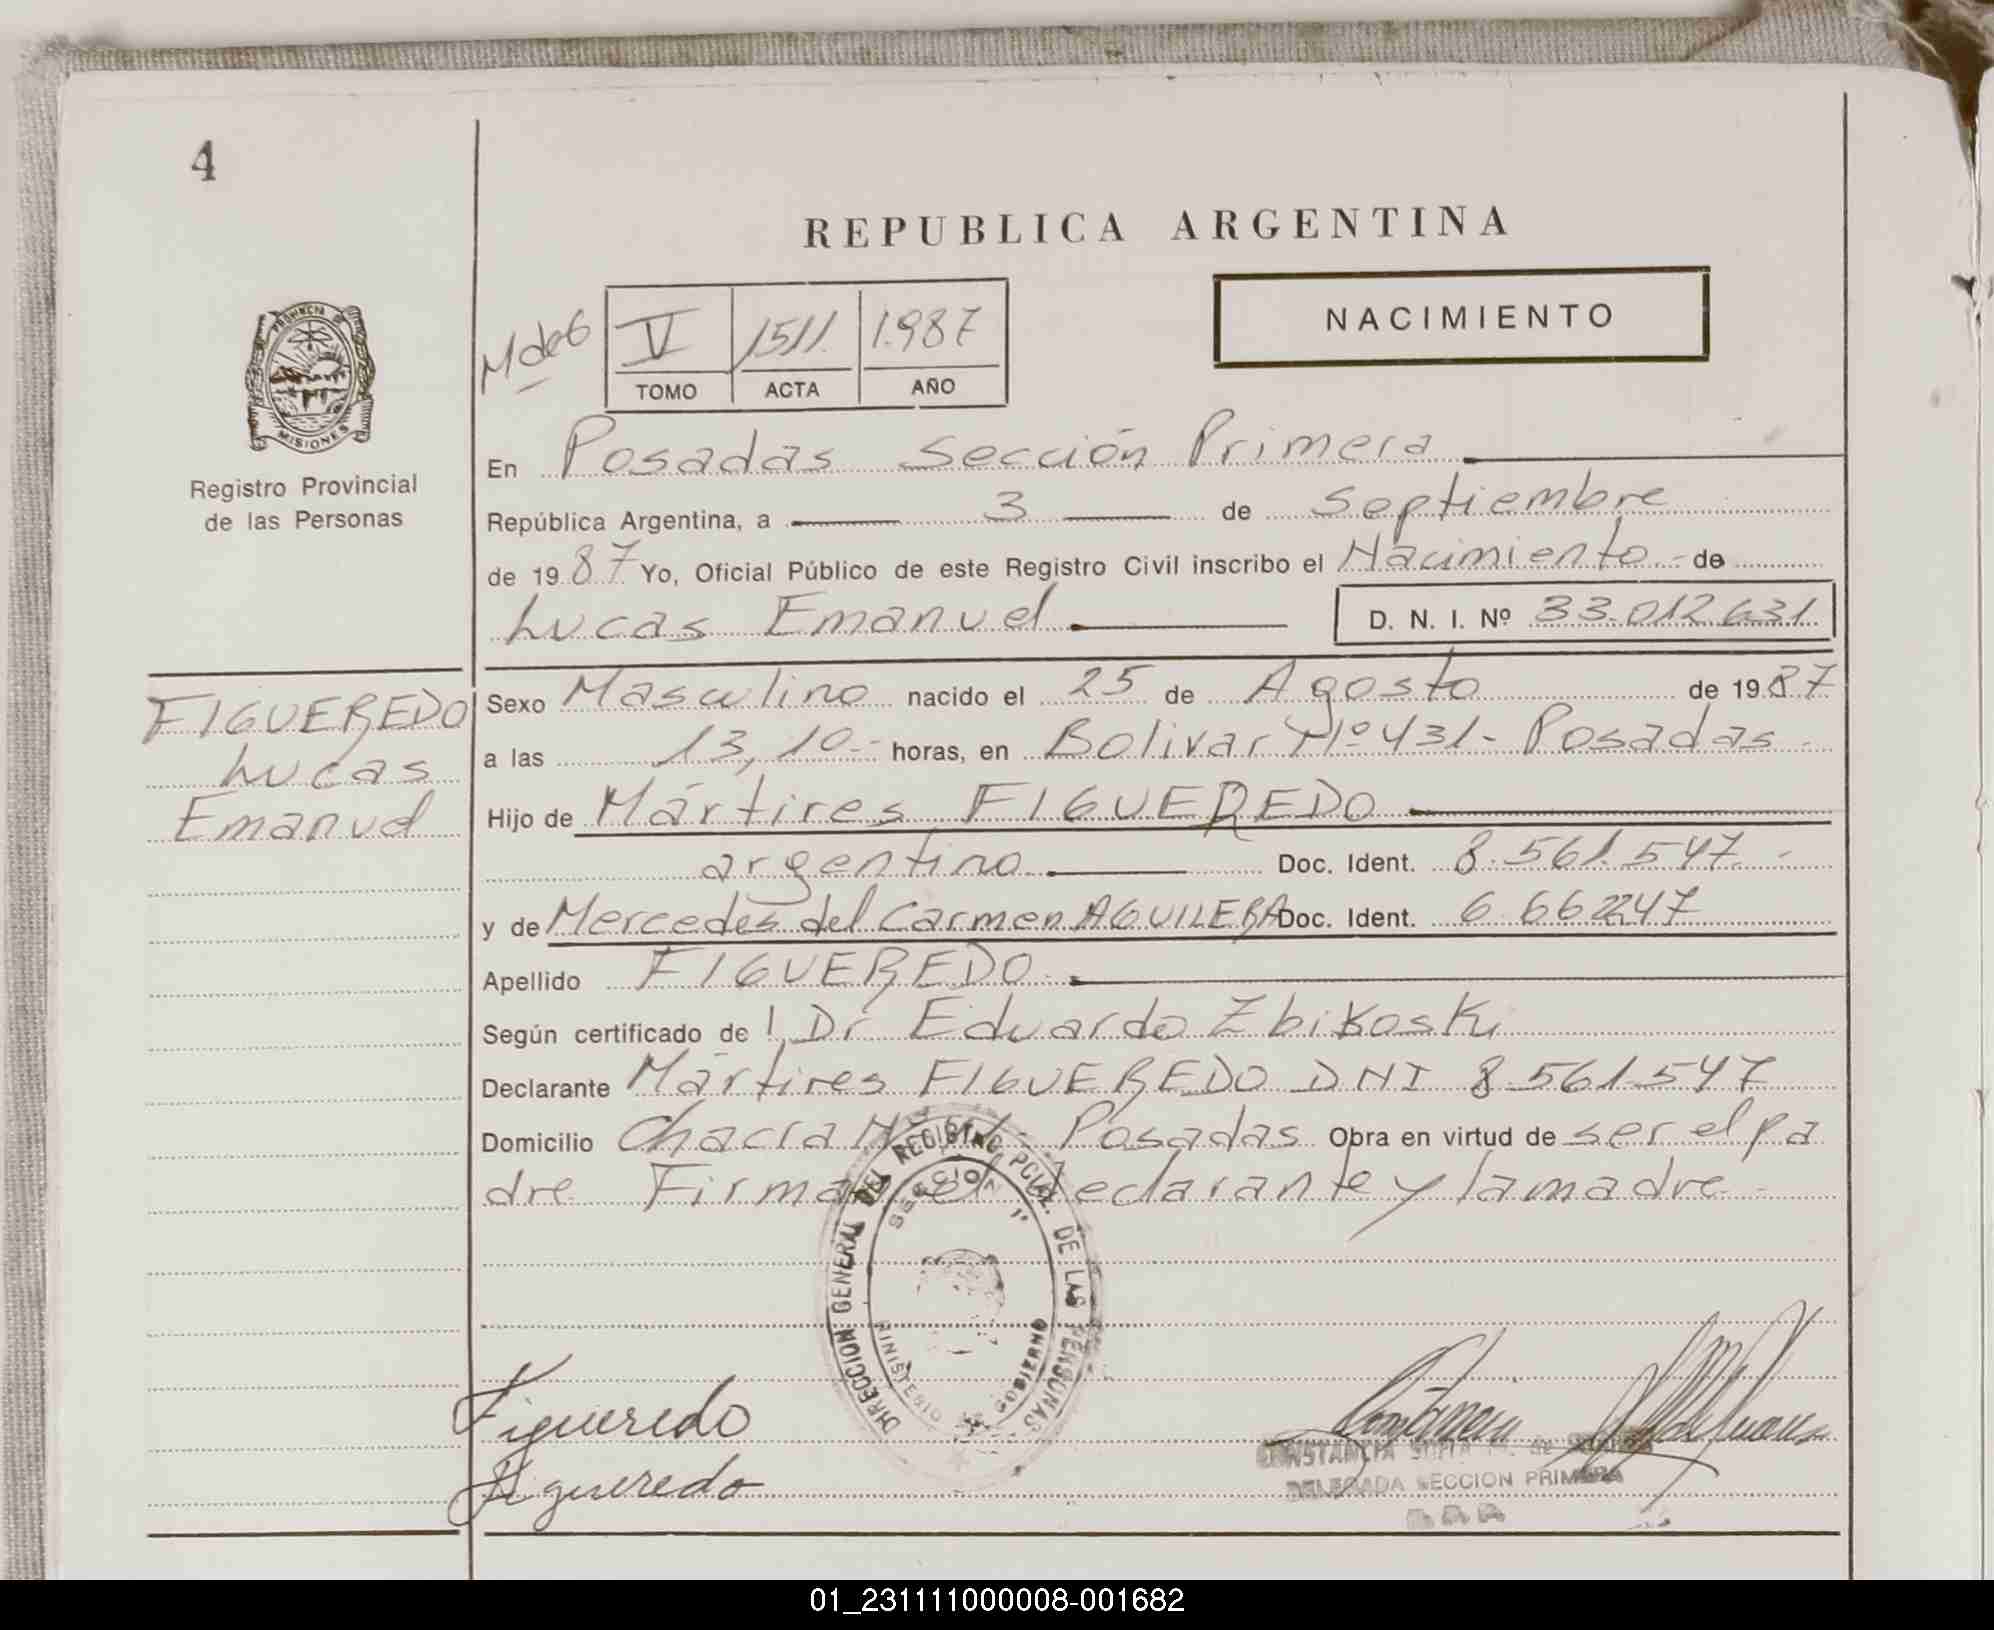 4
REPUBLICA ARGENTINA
NACIMIENTO
M de 6
V 1511 1.987
TOMO ACTA AÑO
PROVINCIA
MISIONES
Registro Provincial
de las Personas
En Posadas Sección Primera
República Argentina, a 3 de Septiembre
de 1987 Yo, Oficial Público de este Registro Civil inscribo el Nacimiento - de
Lucas Emanuel D. N. I. Nº 33.012.631
FIGUEREDO
Lucas
Emanuel
Sexo Masculino nacido el 25 de Agosto de 1987
a las 13,10.- horas, en Bolivar Nº 431 - Posadas -
Hijo de Mártires FIGUEREDO
argentino Doc. Ident. 8.561.547.-
y de Mercedes del Carmen AGUILERA Doc. Ident. 6.662247
Apellido FIGUEREDO.
Según certificado de ! Dr Eduardo Zbikoski
Declarante Mártires FIGUEREDO DNI 8.561.547
Domicilio Chacra Posadas Obra en virtud de ser el pa
dre Firma el declarante y la madre.-
DIRECCION GENERAL DEL REGISTRO PCIAL. DE LAS PERSONAS
SECCION 1º
MINISTERIO DE GOBIERNO
Figueredo
Figueredo
CONSTANCIA SOFIA de
DELEGADA SECCION PRIMERA
01_231111000008-001682